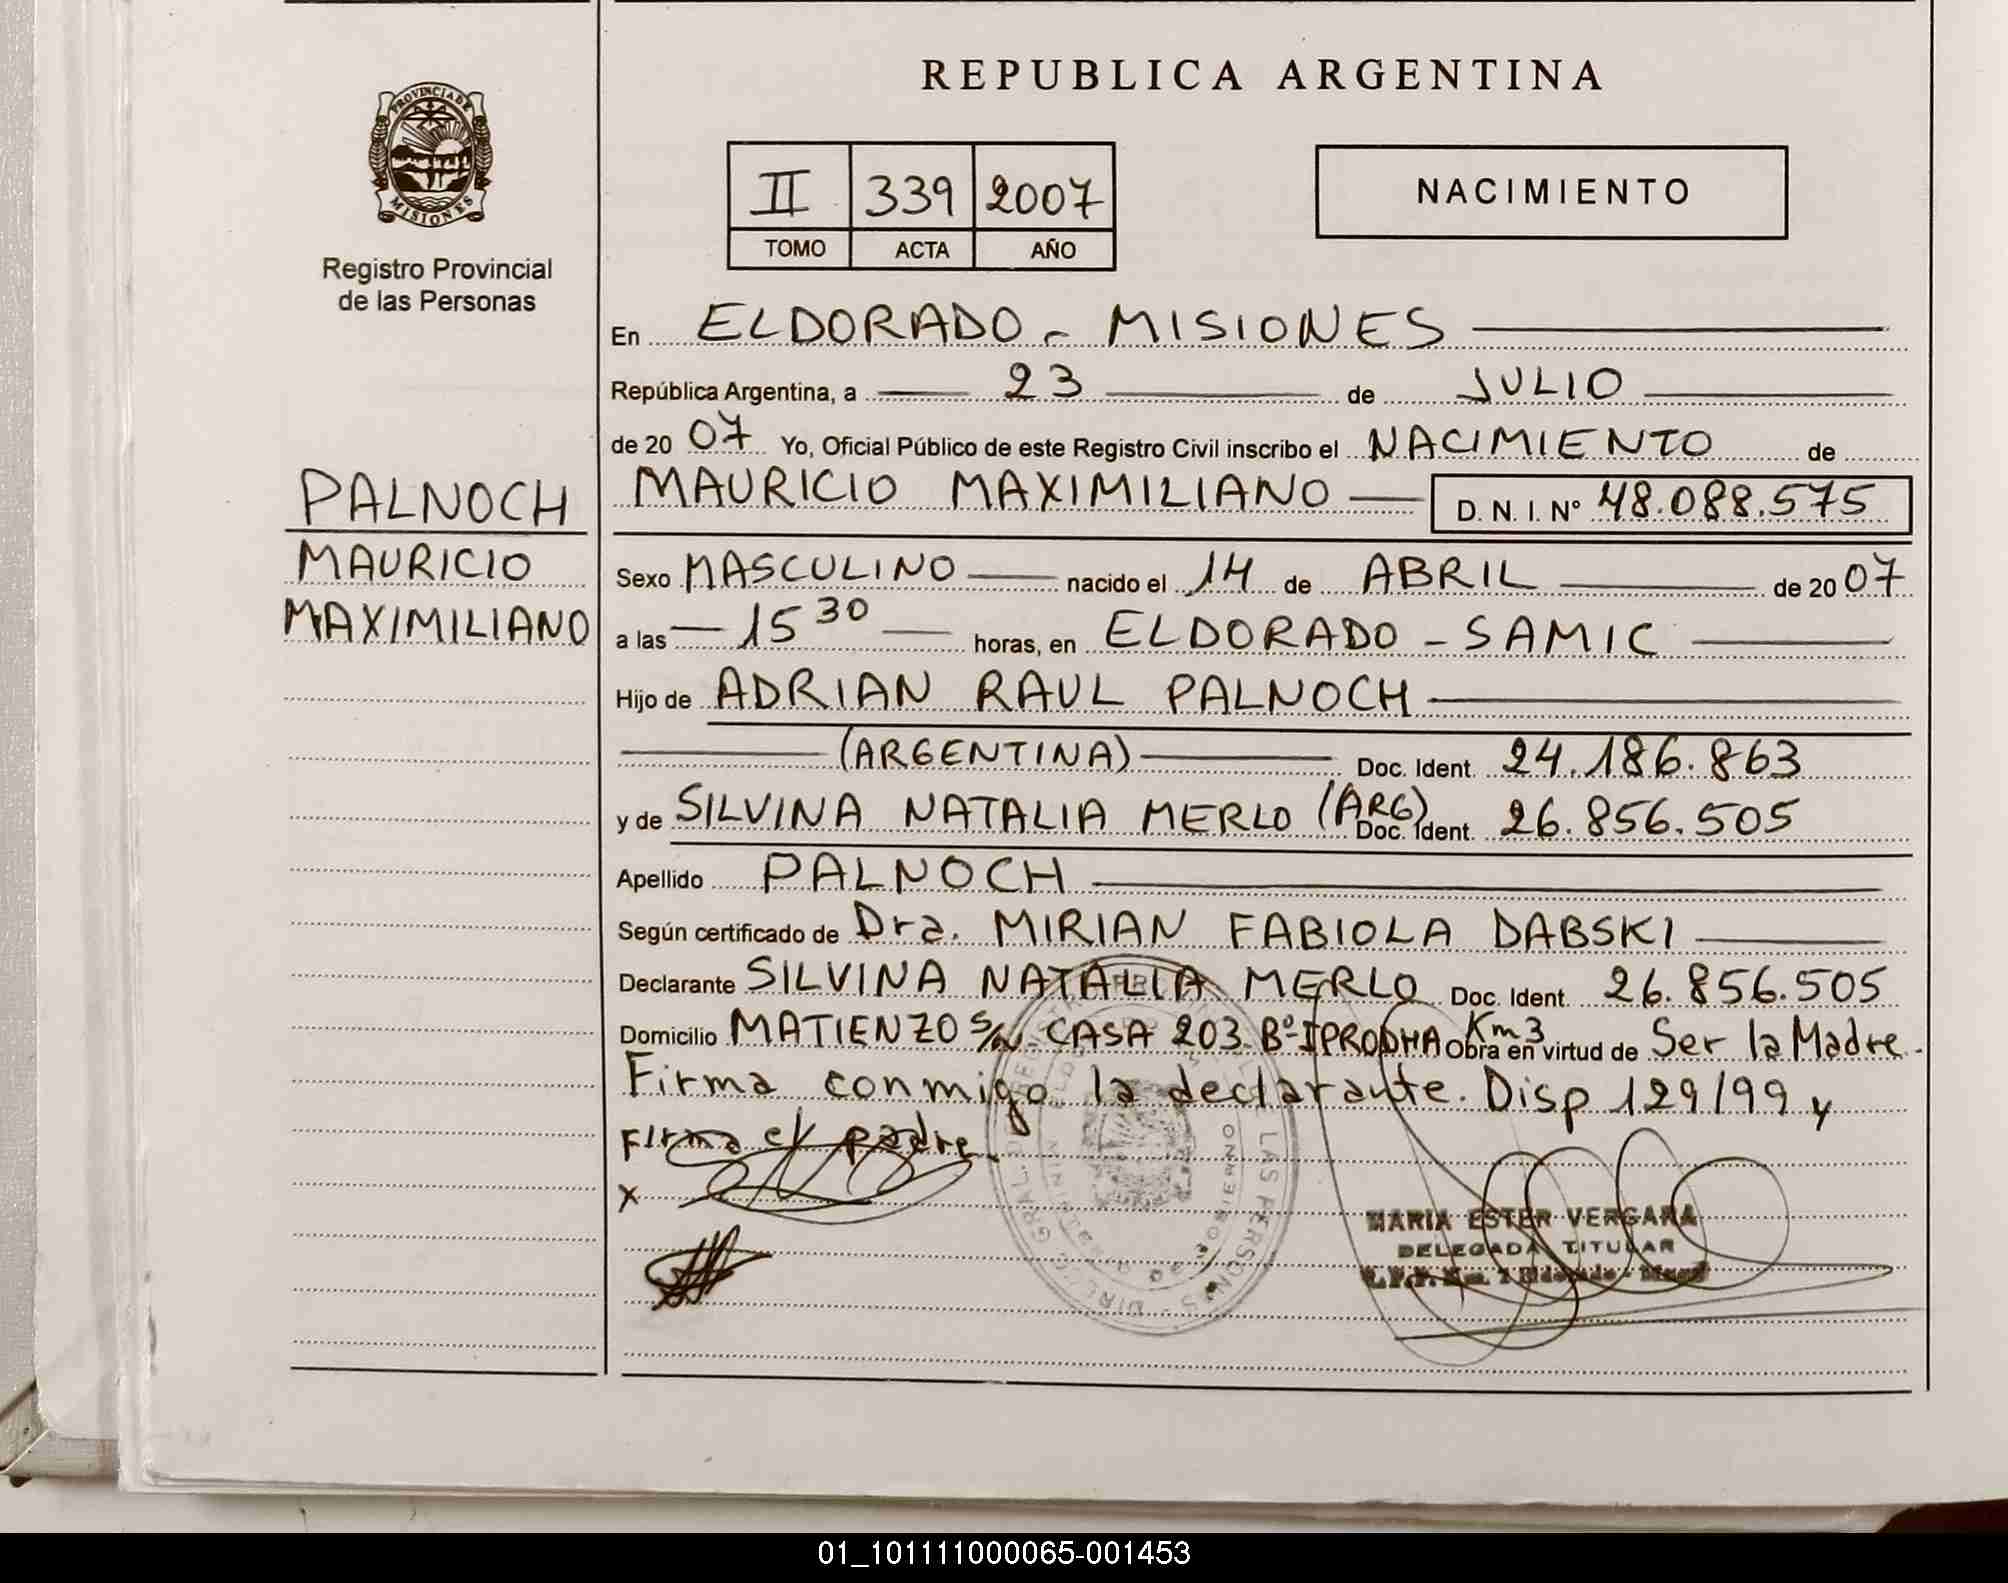 REPUBLICA ARGENTINA
PROVINCIA DE
MISIONES
Registro Provincial
de las Personas
II 339 2007
TOMO ACTA AÑO
NACIMIENTO
En ELDORADO - MISIONES
República Argentina, a 23 de JULIO
de 2007 Yo, Oficial Público de este Registro Civil inscribo el NACIMIENTO de
PALNOCH
MAURICIO
MAXIMILIANO
MAURICIO MAXIMILIANO D. N. I. Nº 48.088.575
Sexo MASCULINO nacido el 14 de ABRIL de 2007
a las 15 30 horas, en ELDORADO - SAMIC
Hijo de ADRIAN RAUL PALNOCH
(ARGENTINA) Doc. Ident. 24.186.863
y de SILVINA NATALIA MERLO (ARG) Doc. Ident. 26.856.505
Apellido PALNOCH
Según certificado de Dra. MIRIAN FABIOLA DABSKI
Declarante SILVINA NATALIA MERLO Doc. Ident. 26.856.505
Domicilio MATIENZO S/N CASA 203 Bº IPRODHA Km 3 Obra en virtud de Ser la Madre.
Firma conmigo la declarante. Disp 129/99 y
Firma el padre.
X
LAS PERSONAS
GOBIERNO
MARIA ESTER VERGARA
DELEGADA TITULAR
01_101111000065-001453